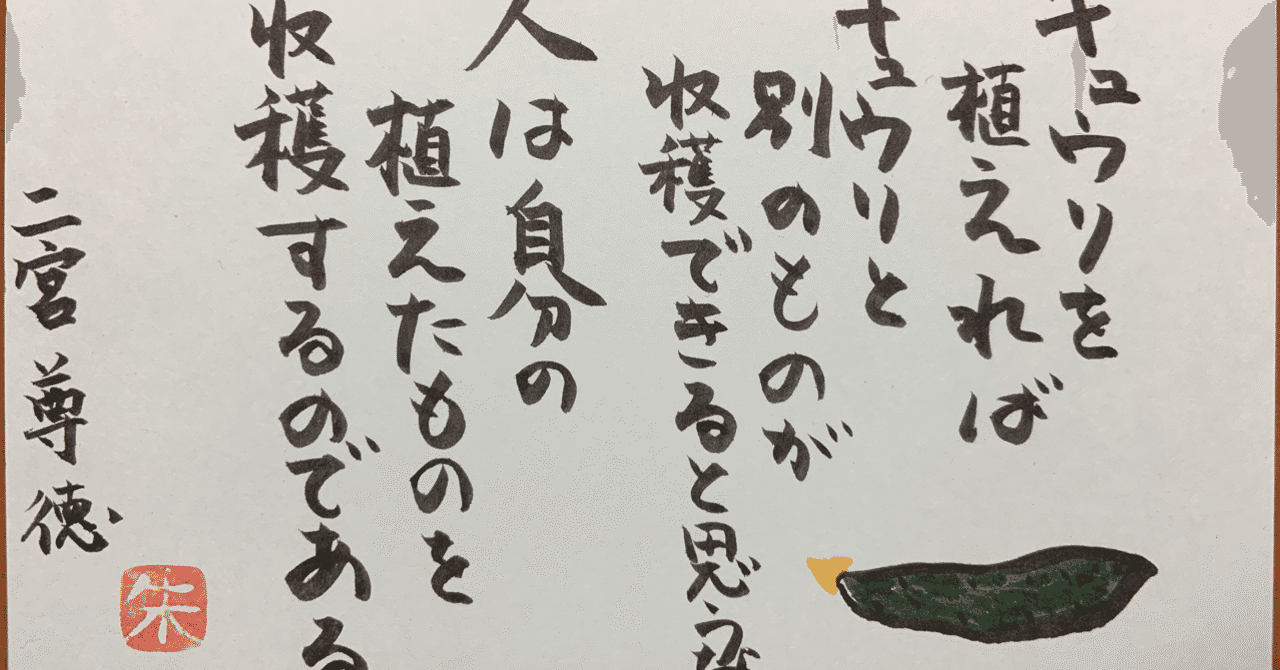 キュウリを
植えれば
キュウリと
別のものが
収穫できると思うな
人は自分の
植えたものを
収穫するのである
二宮尊徳
朱